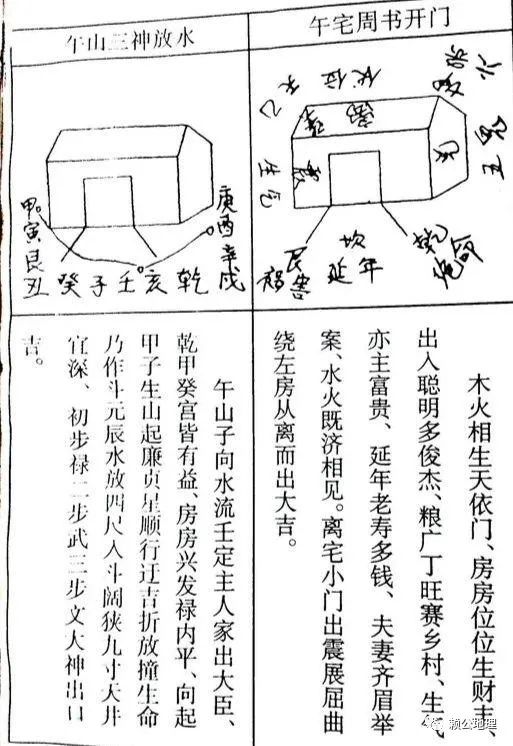 午宅周书开门
伏位
六煞
天乙
五
生气
兑
艮
祸害
坎
延年
乾
绝命
木火相生天依门、房房位位生财丰、
出入聪明多俊杰、粮广丁旺赛乡村、生气
亦主富贵、延年老寿多钱、夫妻齐眉举
案、水火既济相见。离宅小门出震展屈曲
绕左房从离而出大吉。
午山三神放水
甲
寅
艮
丑
癸子壬亥乾
庚
酉
辛
戌
午山子向水流壬定主人家出大臣、
乾甲癸宫皆有益、房房兴发禄内平、向起
甲子生山起廉贞星顺行迂吉折放撞生命
乃作斗元辰水放四尺入斗阔狭九寸天井
宜深、初步禄二步武三步文大神出口
吉。
赖公地理